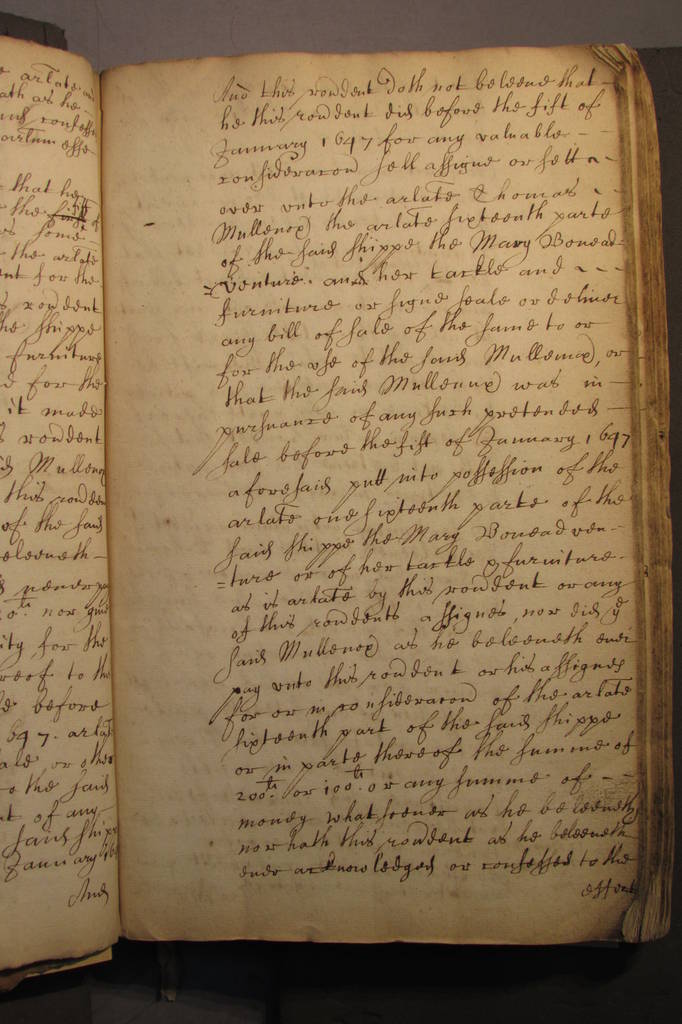 e arlate and
ath as he
and confesse
partum esse
that he
the first of
as some
the arlate
nt for the
s rondent
he shippe
furniture
e for the
it made
s rondent
id Mullenox
this ronden
of the said
eleeveth -
d never pa
0li. nor gave
ity for the
reof to the
e before
647. arlate
ale or other
o the said
nt of any
said shipp
January 164
And
And this rondent doth not beleeve that -
he this rondent did before the first of
January 1647 for any valuable - -
consideracon sell assigne or sett -
over unto the arlate Thomas - -
Mullenox the arlate sixteenth parte
of the said shippe the Mary Bonead-
venture. and her tackle and - - -
furniture or signe seale or deliver
any bill of sale of the same to or
for the use of the said Mullenox, or
that the said Mullenox was in -
pursuance of any such pretended -
sale before the first of January 1647
aforesaid putt into possession of the
arlate one sixteenth parte of the
said shippe the Mary Bonead ven-
=ture or of her tackle & furniture -
as is arlate by this rondent or any
of this rondents assignes, nor did ye
said Mullenox as he beleeveth ever
pay unto this rondent or his assignes
for or in consideracon of the arlate
sixteenth part of the said shippe
or in parte thereof the summe of
200li. or 100li. or any summe of - -
money whatsoever as he beleeveth,
nor hath this rondent as he beleeveth
ever acknowledged or confessed to the
effect